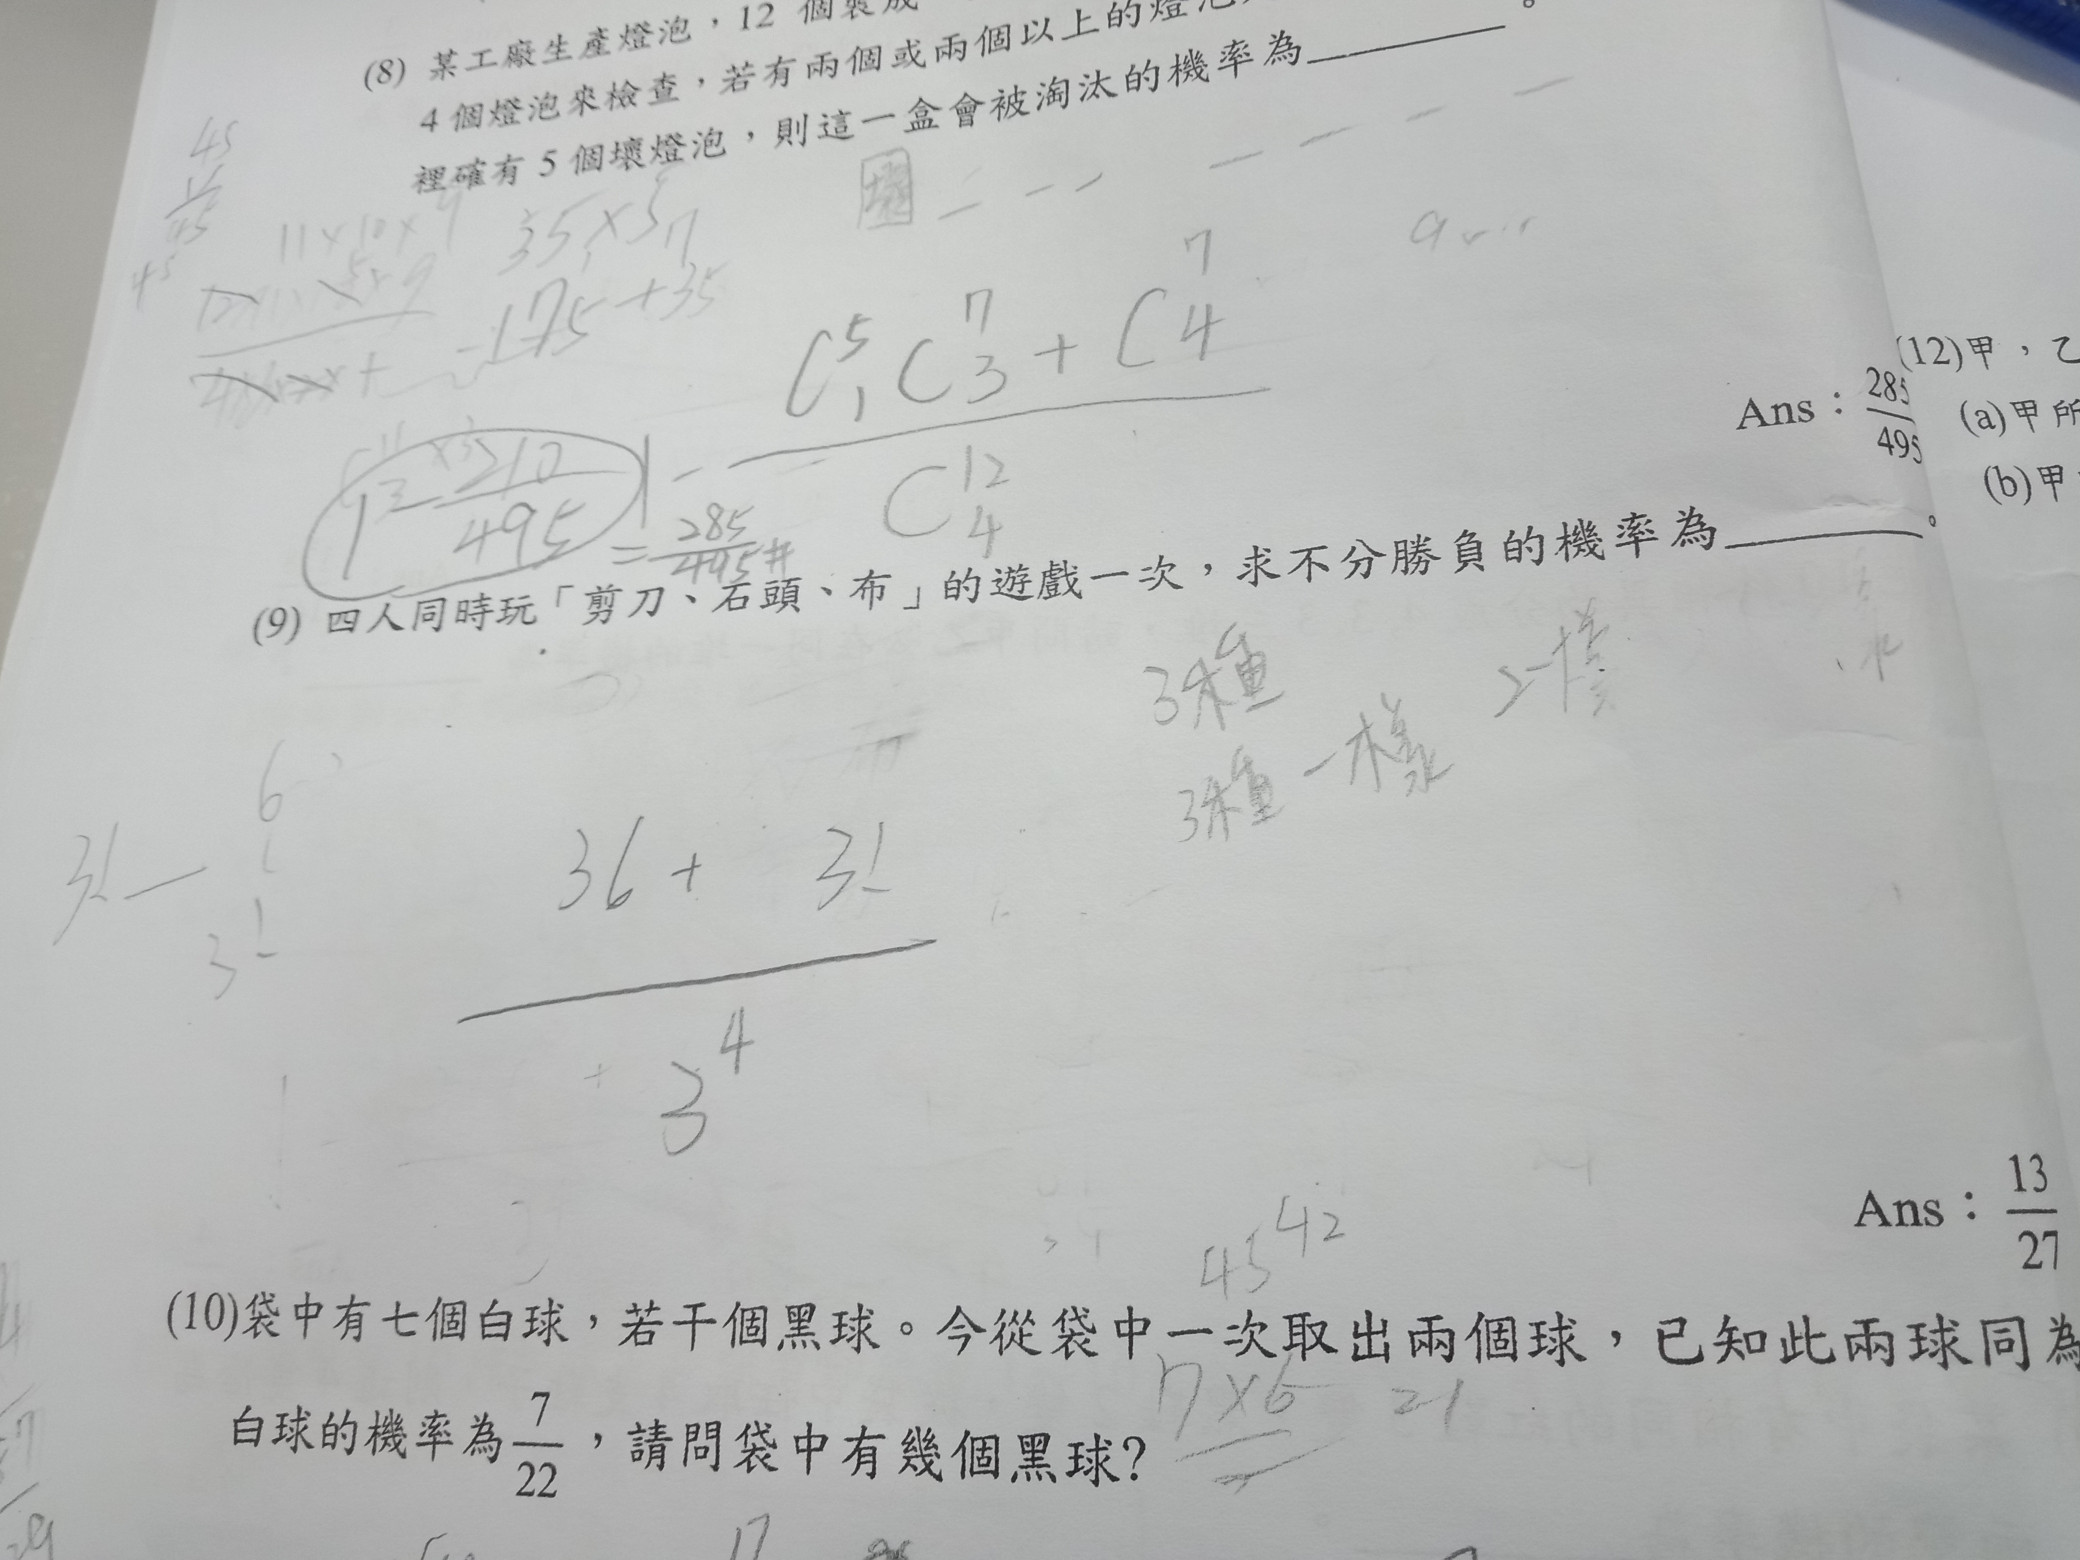 (8) 某工廠生產燈泡，12 個裝成
4 個燈泡來檢查，若有兩個或兩個以上的燈泡
裡確有 5 個壞燈泡，則這一盒會被淘汰的機率為______。
45
11×10×9
35×5
175+35
C⁵₁C⁷₃+C⁷₄
1-
C¹²₄
1-210/495
=285/495#
Ans：285/495
(9) 四人同時玩「剪刀、石頭、布」的遊戲一次，求不分勝負的機率為______。
3種
3種一樣
36+ 3!
3⁴
6
3!
Ans：13/27
45 42
(10)袋中有七個白球，若干個黑球。今從袋中一次取出兩個球，已知此兩球同為
白球的機率為7/22，請問袋中有幾個黑球?
7×6
21
17
(12)甲，乙
(a)甲所
(b)甲